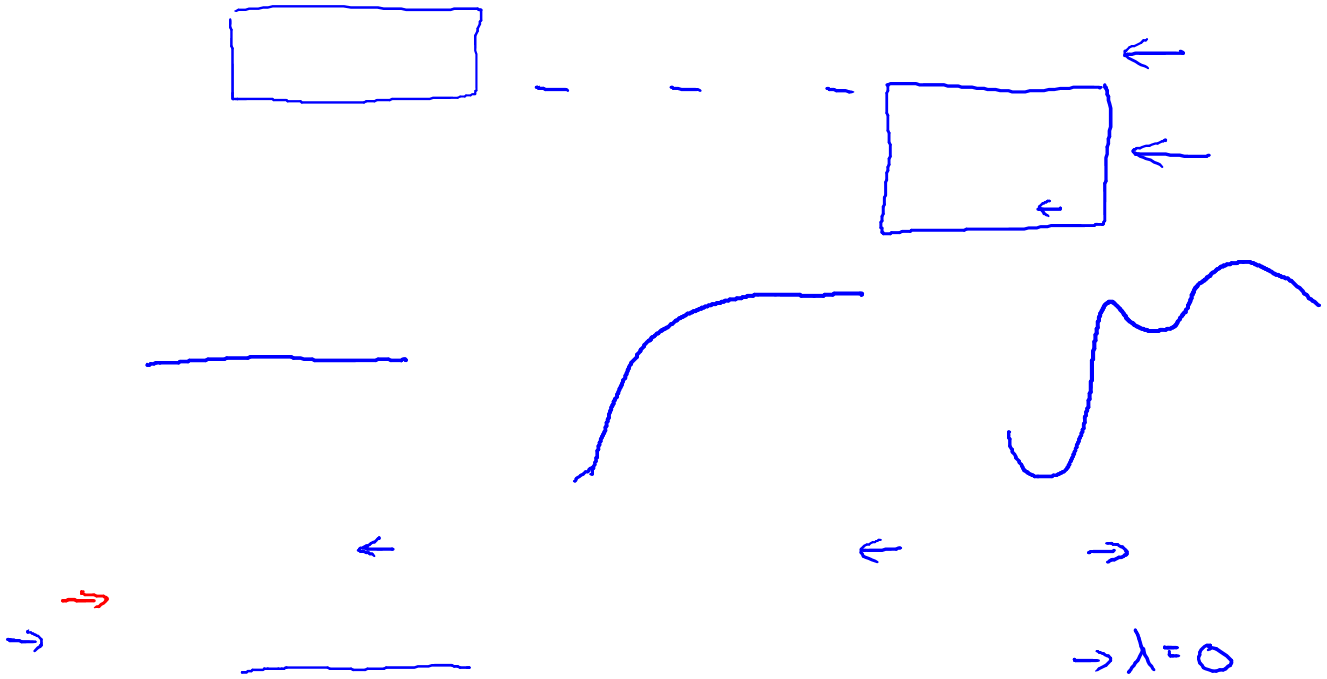 → λ = 0